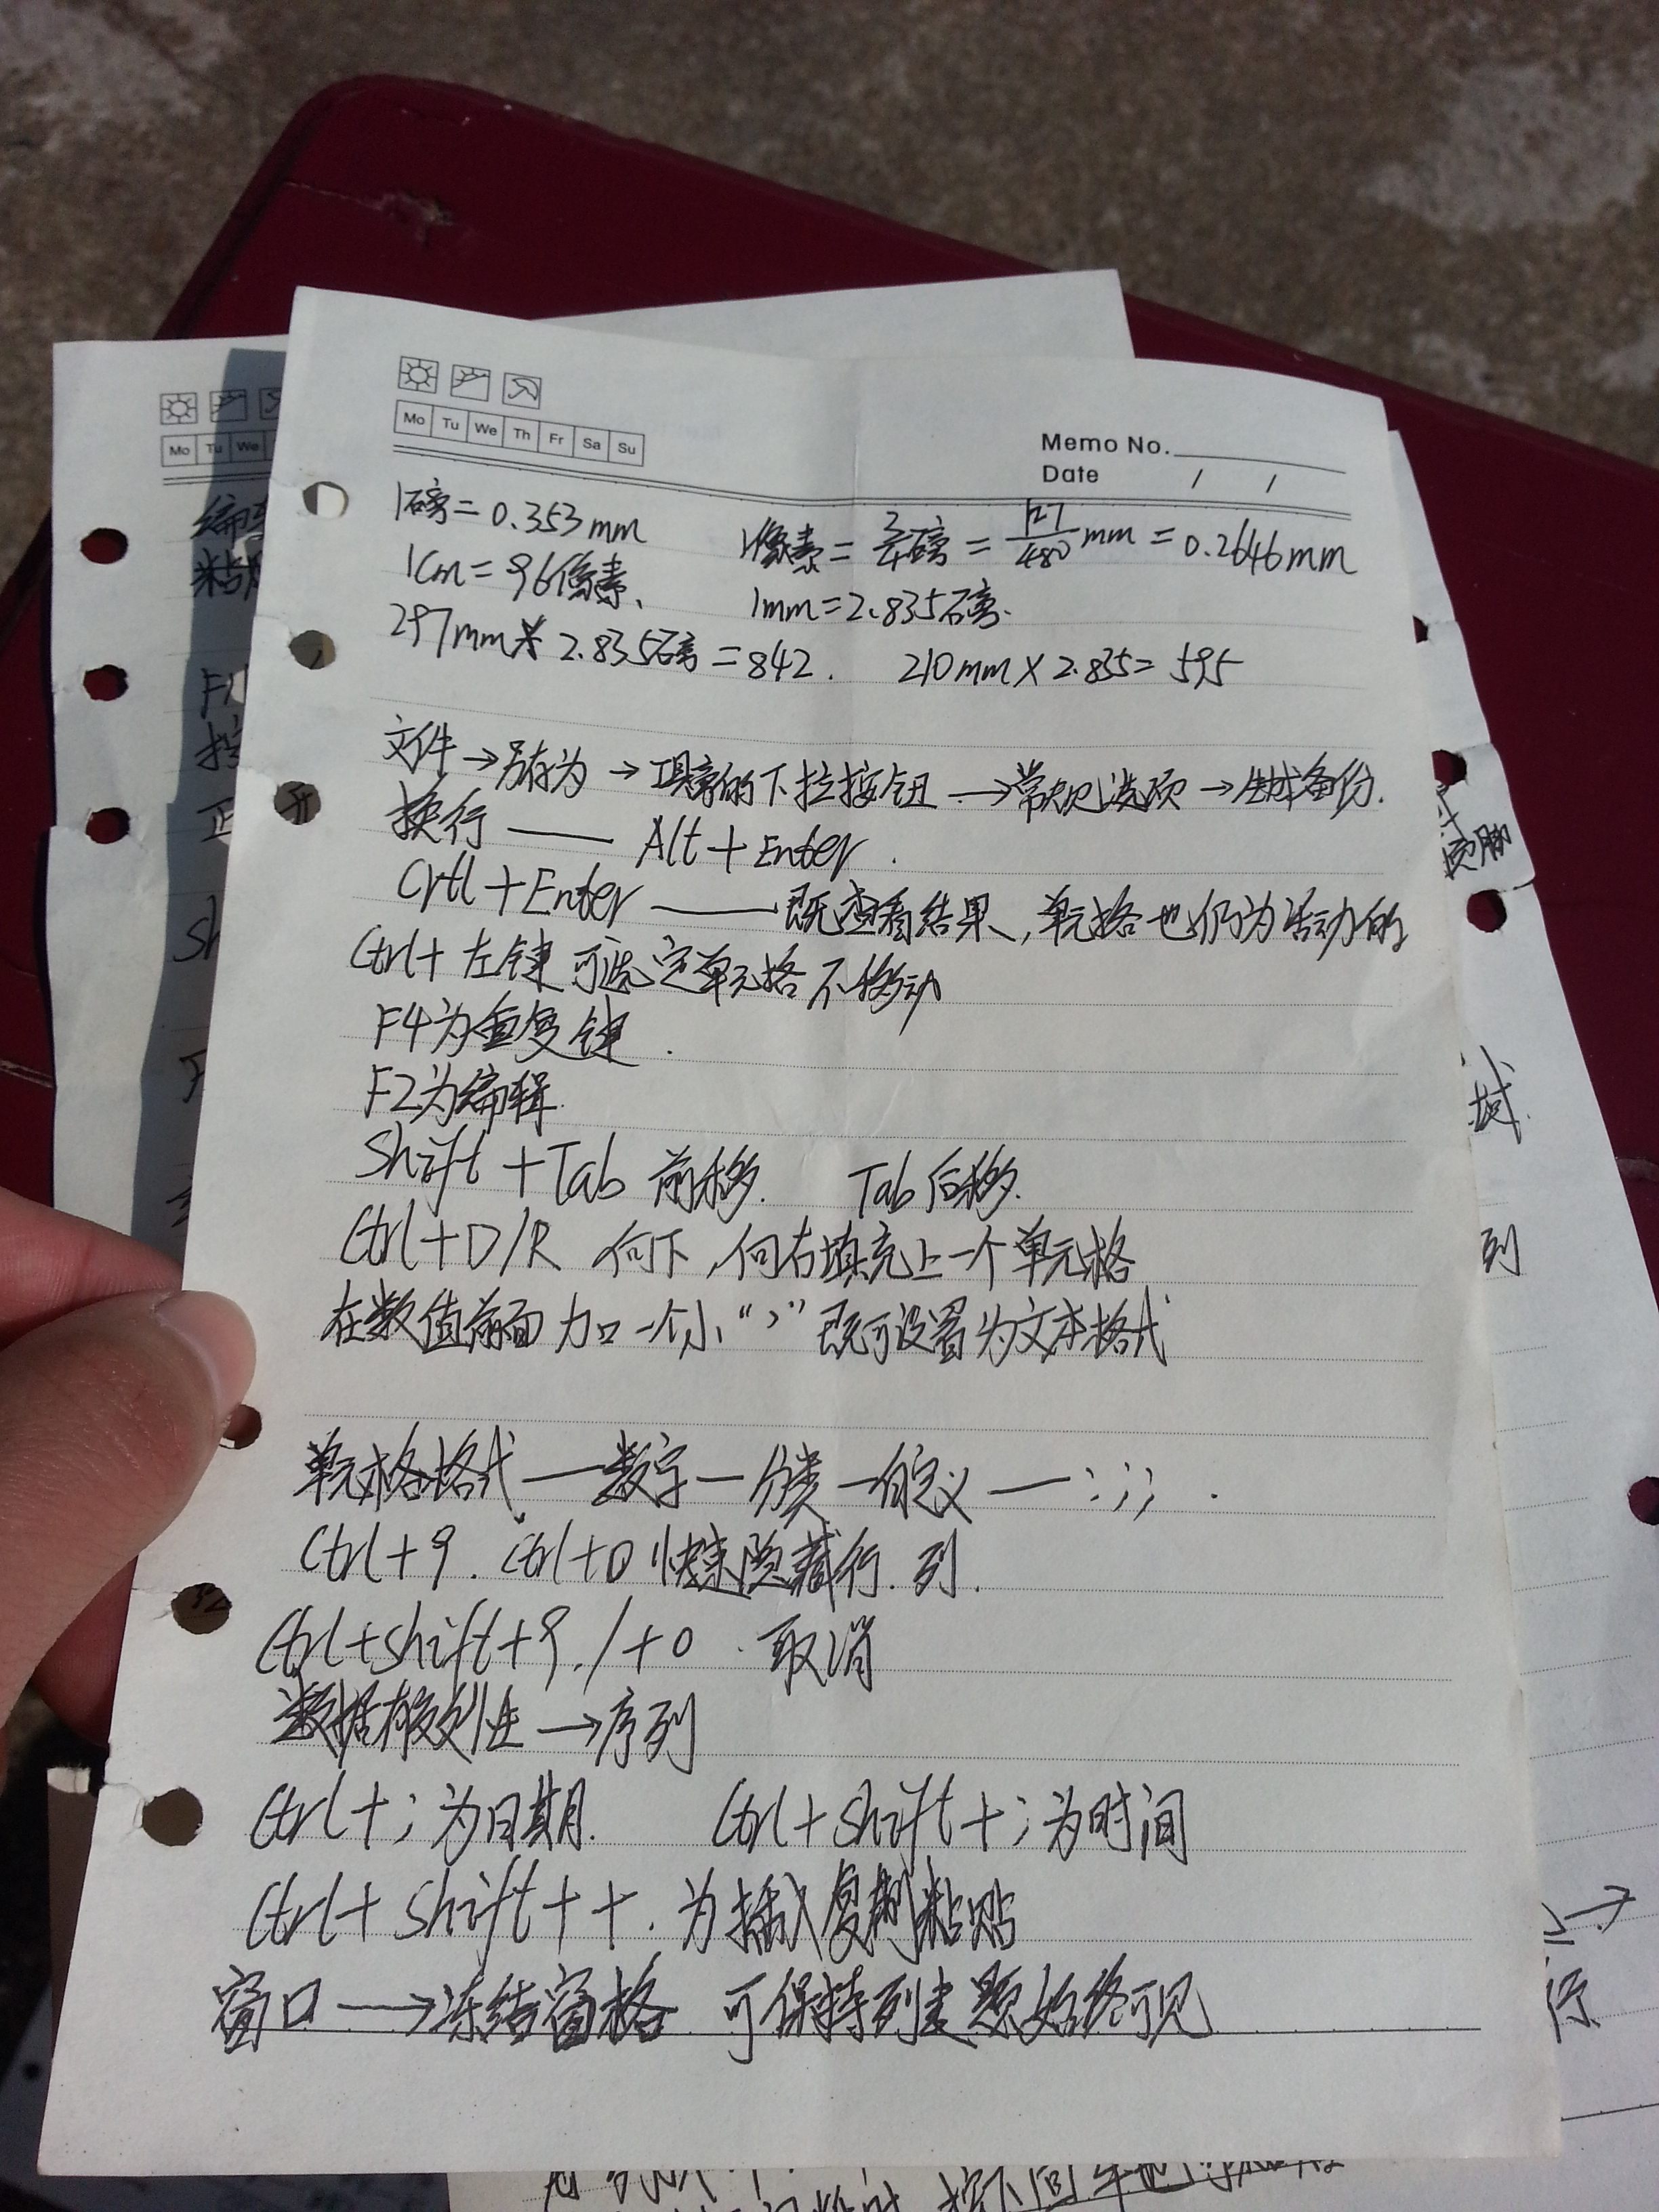 Mo Tu We Th Fr Sa Su
Memo No.
Date / /
1磅=0.353mm 1像素=3/4磅=127/480mm=0.2646mm
1cm=96像素、 1mm=2.835磅.
297mm×2.835磅=842. 210mm×2.835=595
文件→另存为→工具旁的下拉按钮→常规选项→生成备份.
换行——Alt+Enter.
Crtl+Enter——既查看结果,单元格也仍为活动的
Ctrl+左键可选定单元格不移动
F4为重复键.
F2为编辑.
Shift+Tab前移. Tab后移.
Ctrl+D/R 向下,向右填充上一个单元格
在数值前面加一个小“,”既可设置为文本格式
单元格格式—数字—分类—自定义—:;; .
Ctrl+9.Ctrl+0快速隐藏行.列.
Ctrl+shift+9./+0.取消
数据有效性→序列
Ctrl+;为日期. Ctrl+shift+;为时间
Ctrl+shift++.为插入复制粘贴
窗口→冻结窗格 可保持列表题始终可见
Mo Tu We
页脚
域.
列
行